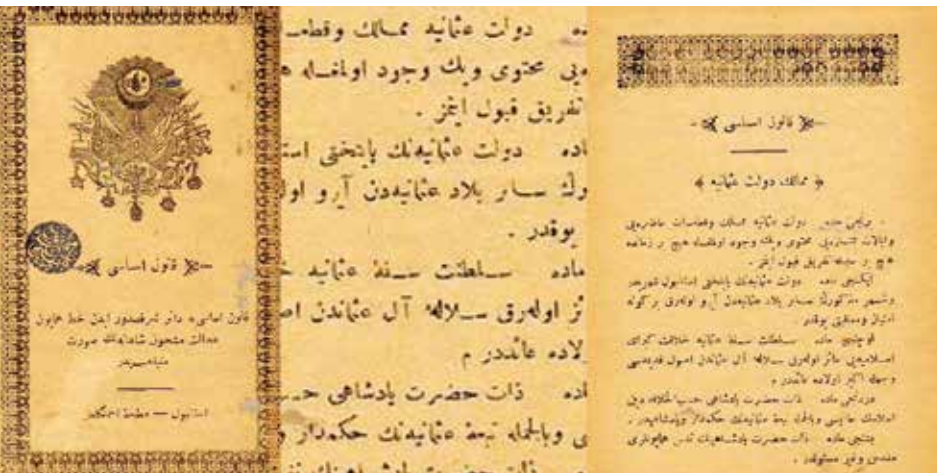 قانون اساسی
قانون اساسی‌یه دائر شرفصدور ایدن خط همایون
عدالت مشحون شاهانه‌نك صورت
منیفه‌سیدر
استانبول — مطبعهٔ
ده دولت عثمانیه ممالك وقطعـ
یی محتوی ویك وجود اولمغله هـ
تفریق قبول ایتمز .
اده دولت عثمانیه‌نك پایتختی استا
ورك سـائر بلاد عثمانیه‌دن آیرو اولـ
یوقدر .
ماده سـلطنت سـنیهٔ عثمانیه خـ
ئز اوله‌رق سـلالهٔ آل عثماندن اصـ
لاده عائددر
اده ذات حضرت پادشاهی حـ
ی وبالجمله تبعهٔ عثمانیه‌نك حکمدار و
قانون اساسی
ممالك دولت عثمانیه
برنجی ماده دولت عثمانیه ممالك وقطعات حاضره‌یی
وایالات ممتازه‌یی محتوی ویك وجود اولمغله هیچ بر زمانده
هیچ بر سببله تفریق قبول ایتمز .
ایکنجی ماده دولت عثمانیه‌نك پایتختی استانبول شهریدر
وشهر مذکورك سـائر بلاد عثمانیه‌دن آیرو اوله‌رق بر کونه
امتیاز ومعافیتی یوقدر .
اوچنجی ماده سـلطنت سـنیهٔ عثمانیه خلافت کبرای
اسـلامیه‌یی حائز اوله‌رق سـلالهٔ آل عثماندن اصول قدیمه‌سی
وجهله اکبر اولاده عائددر
دردنجی ماده ذات حضرت پادشاهی حسب الخلافه دین
اسلامك حامیسی وبالجمله تبعهٔ عثمانیه‌نك حکمدار وپادشاهیدر .
بشنجی ماده ذات حضرت پادشاهینك نفس همایونلری
مقدس وغیر مسئولدر .